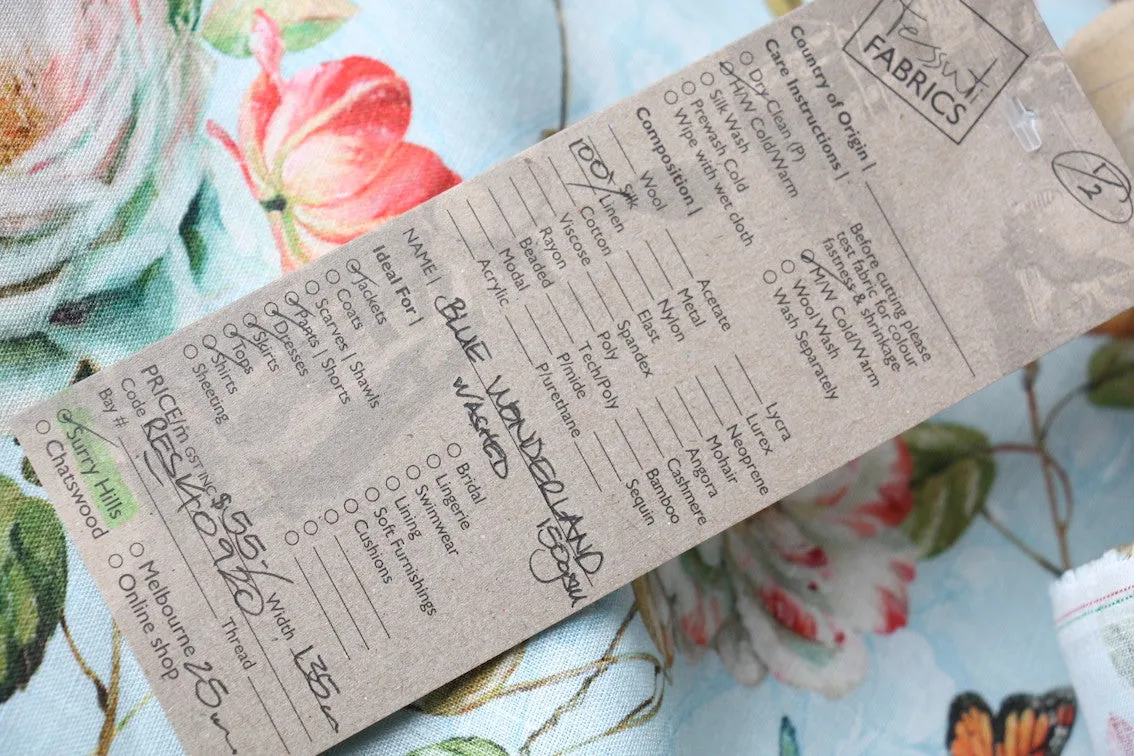 Tessuti
FABRICS
1/2
Country of Origin |
Care Instructions |
Dry Clean (P)
H/W Cold/Warm
Silk Wash
Prewash Cold
Wipe with wet cloth
Before cutting please
test fabric for colour
fastness & shrinkage
M/W Cold/Warm
Wool Wash
Wash Separately
Composition |
Wool
Silk
100% Linen
Cotton
Viscose
Rayon
Beaded
Modal
Acrylic
Acetate
Metal
Nylon
Elast
Spandex
Poly
Tech/Poly
P/mide
P/urethane
Lycra
Lurex
Neoprene
Mohair
Angora
Cashmere
Bamboo
Sequin
NAME | BLUE WONDERLAND
WASHED 150gsm
Ideal For |
Jackets
Coats
Scarves | Shawls
Pants | Shorts
Dresses
Skirts
Tops
Shirts
Sheeting
Bridal
Lingerie
Swimwear
Lining
Soft Furnishings
Cushions
PRICE/m GST INC $55 Width 135
Code
Bay # Thread
Surry Hills
Chatswood
Melbourne
Online shop